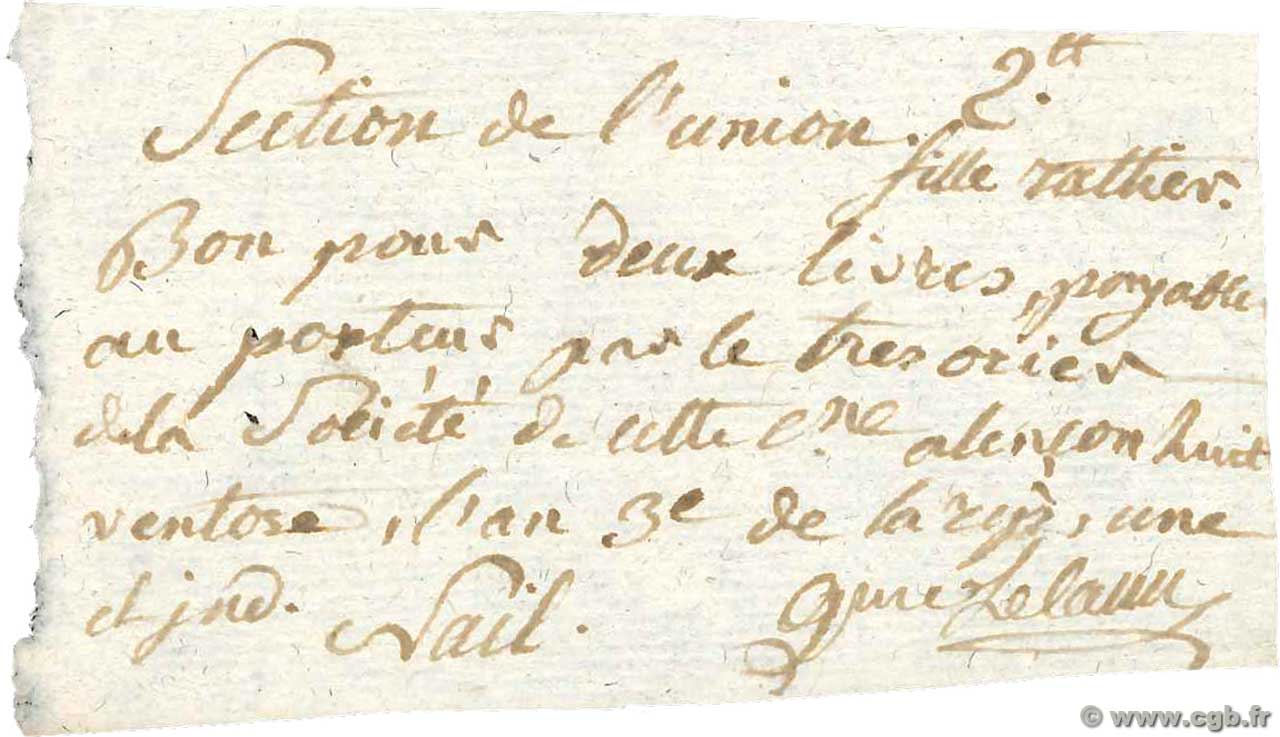 Section de l'union. 2.tt
fille rathier.
Bon pour deux livres, payable
au porteur, par le tresorier
de la Société de cette c.ne alençon huit
ventose, l'an 3e de la rep., une
et ind. Nail.